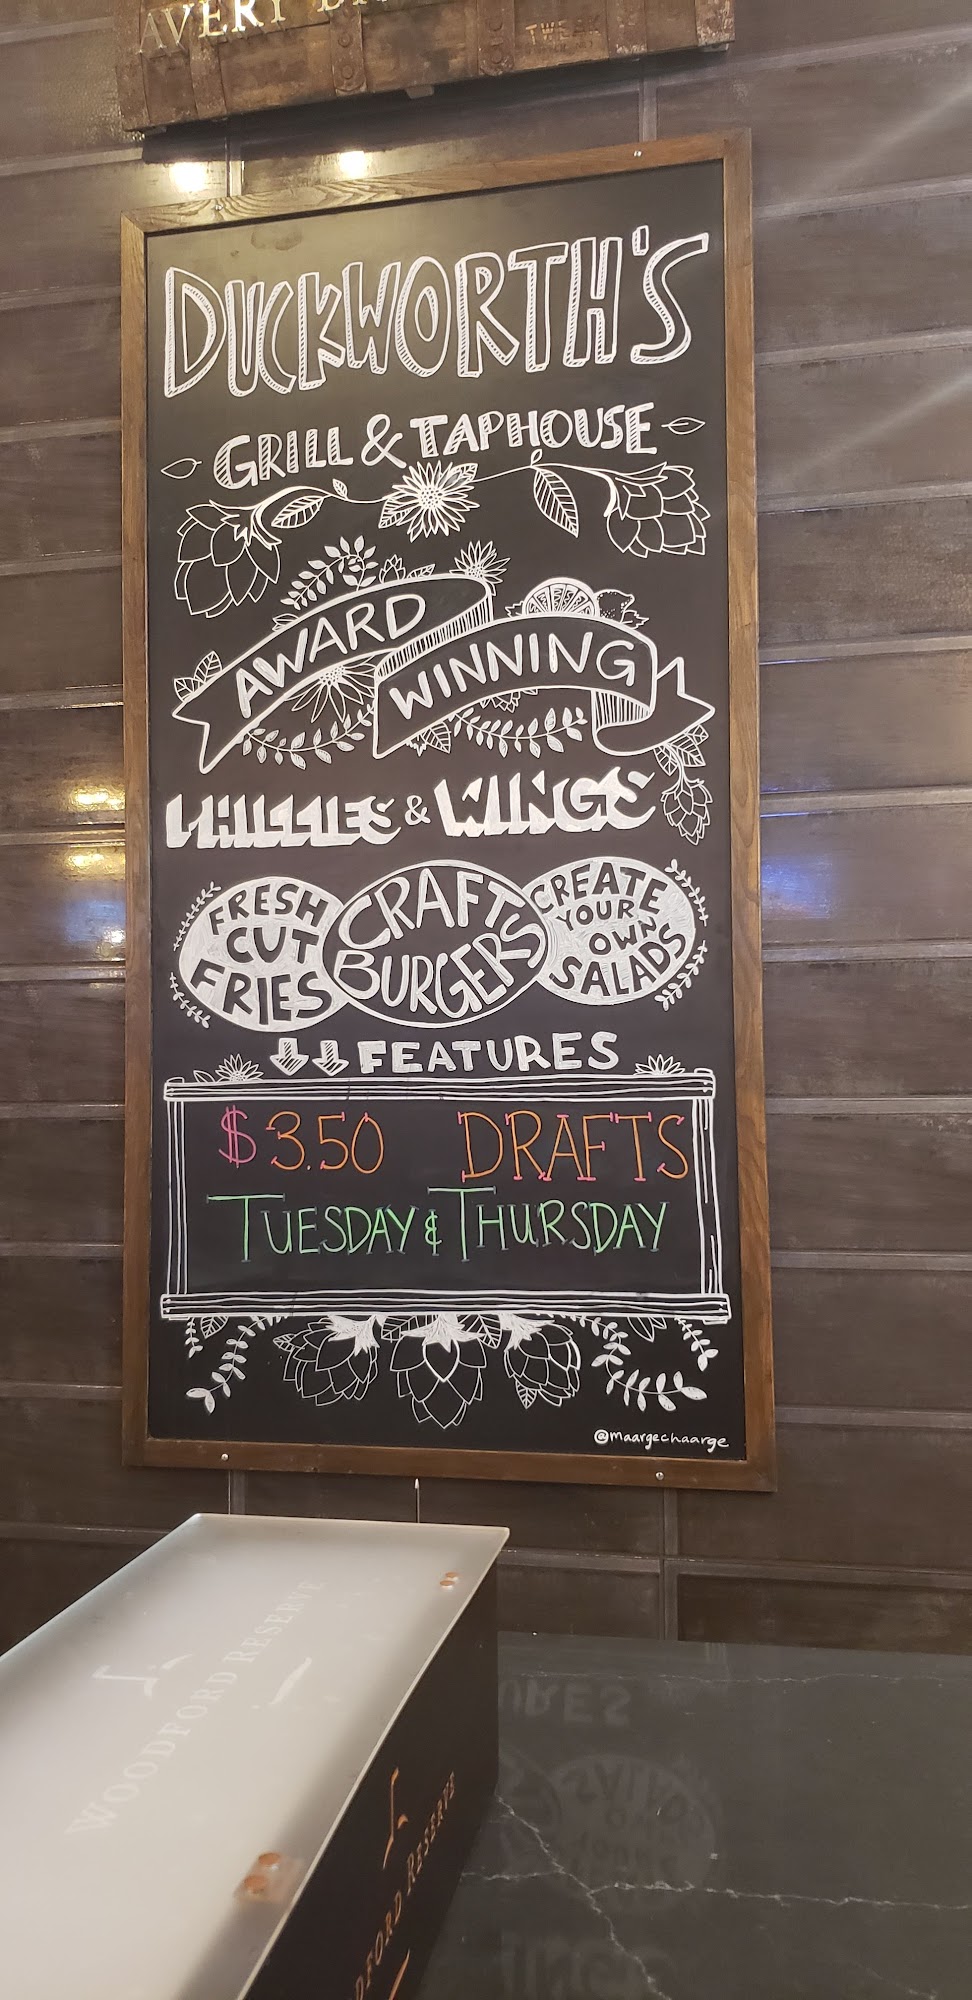 AVERY
TWEAK
DUCKWORTH'S
GRILL & TAPHOUSE
AWARD
WINNING
PHILLIES & WINGS
FRESH
CUT
FRIES
CRAFT
BURGERS
CREATE
YOUR
OWN
SALADS
FEATURES
$3.50 DRAFTS
TUESDAY & THURSDAY
@maargechaarge
WOODFORD RESERVE
RESERVE